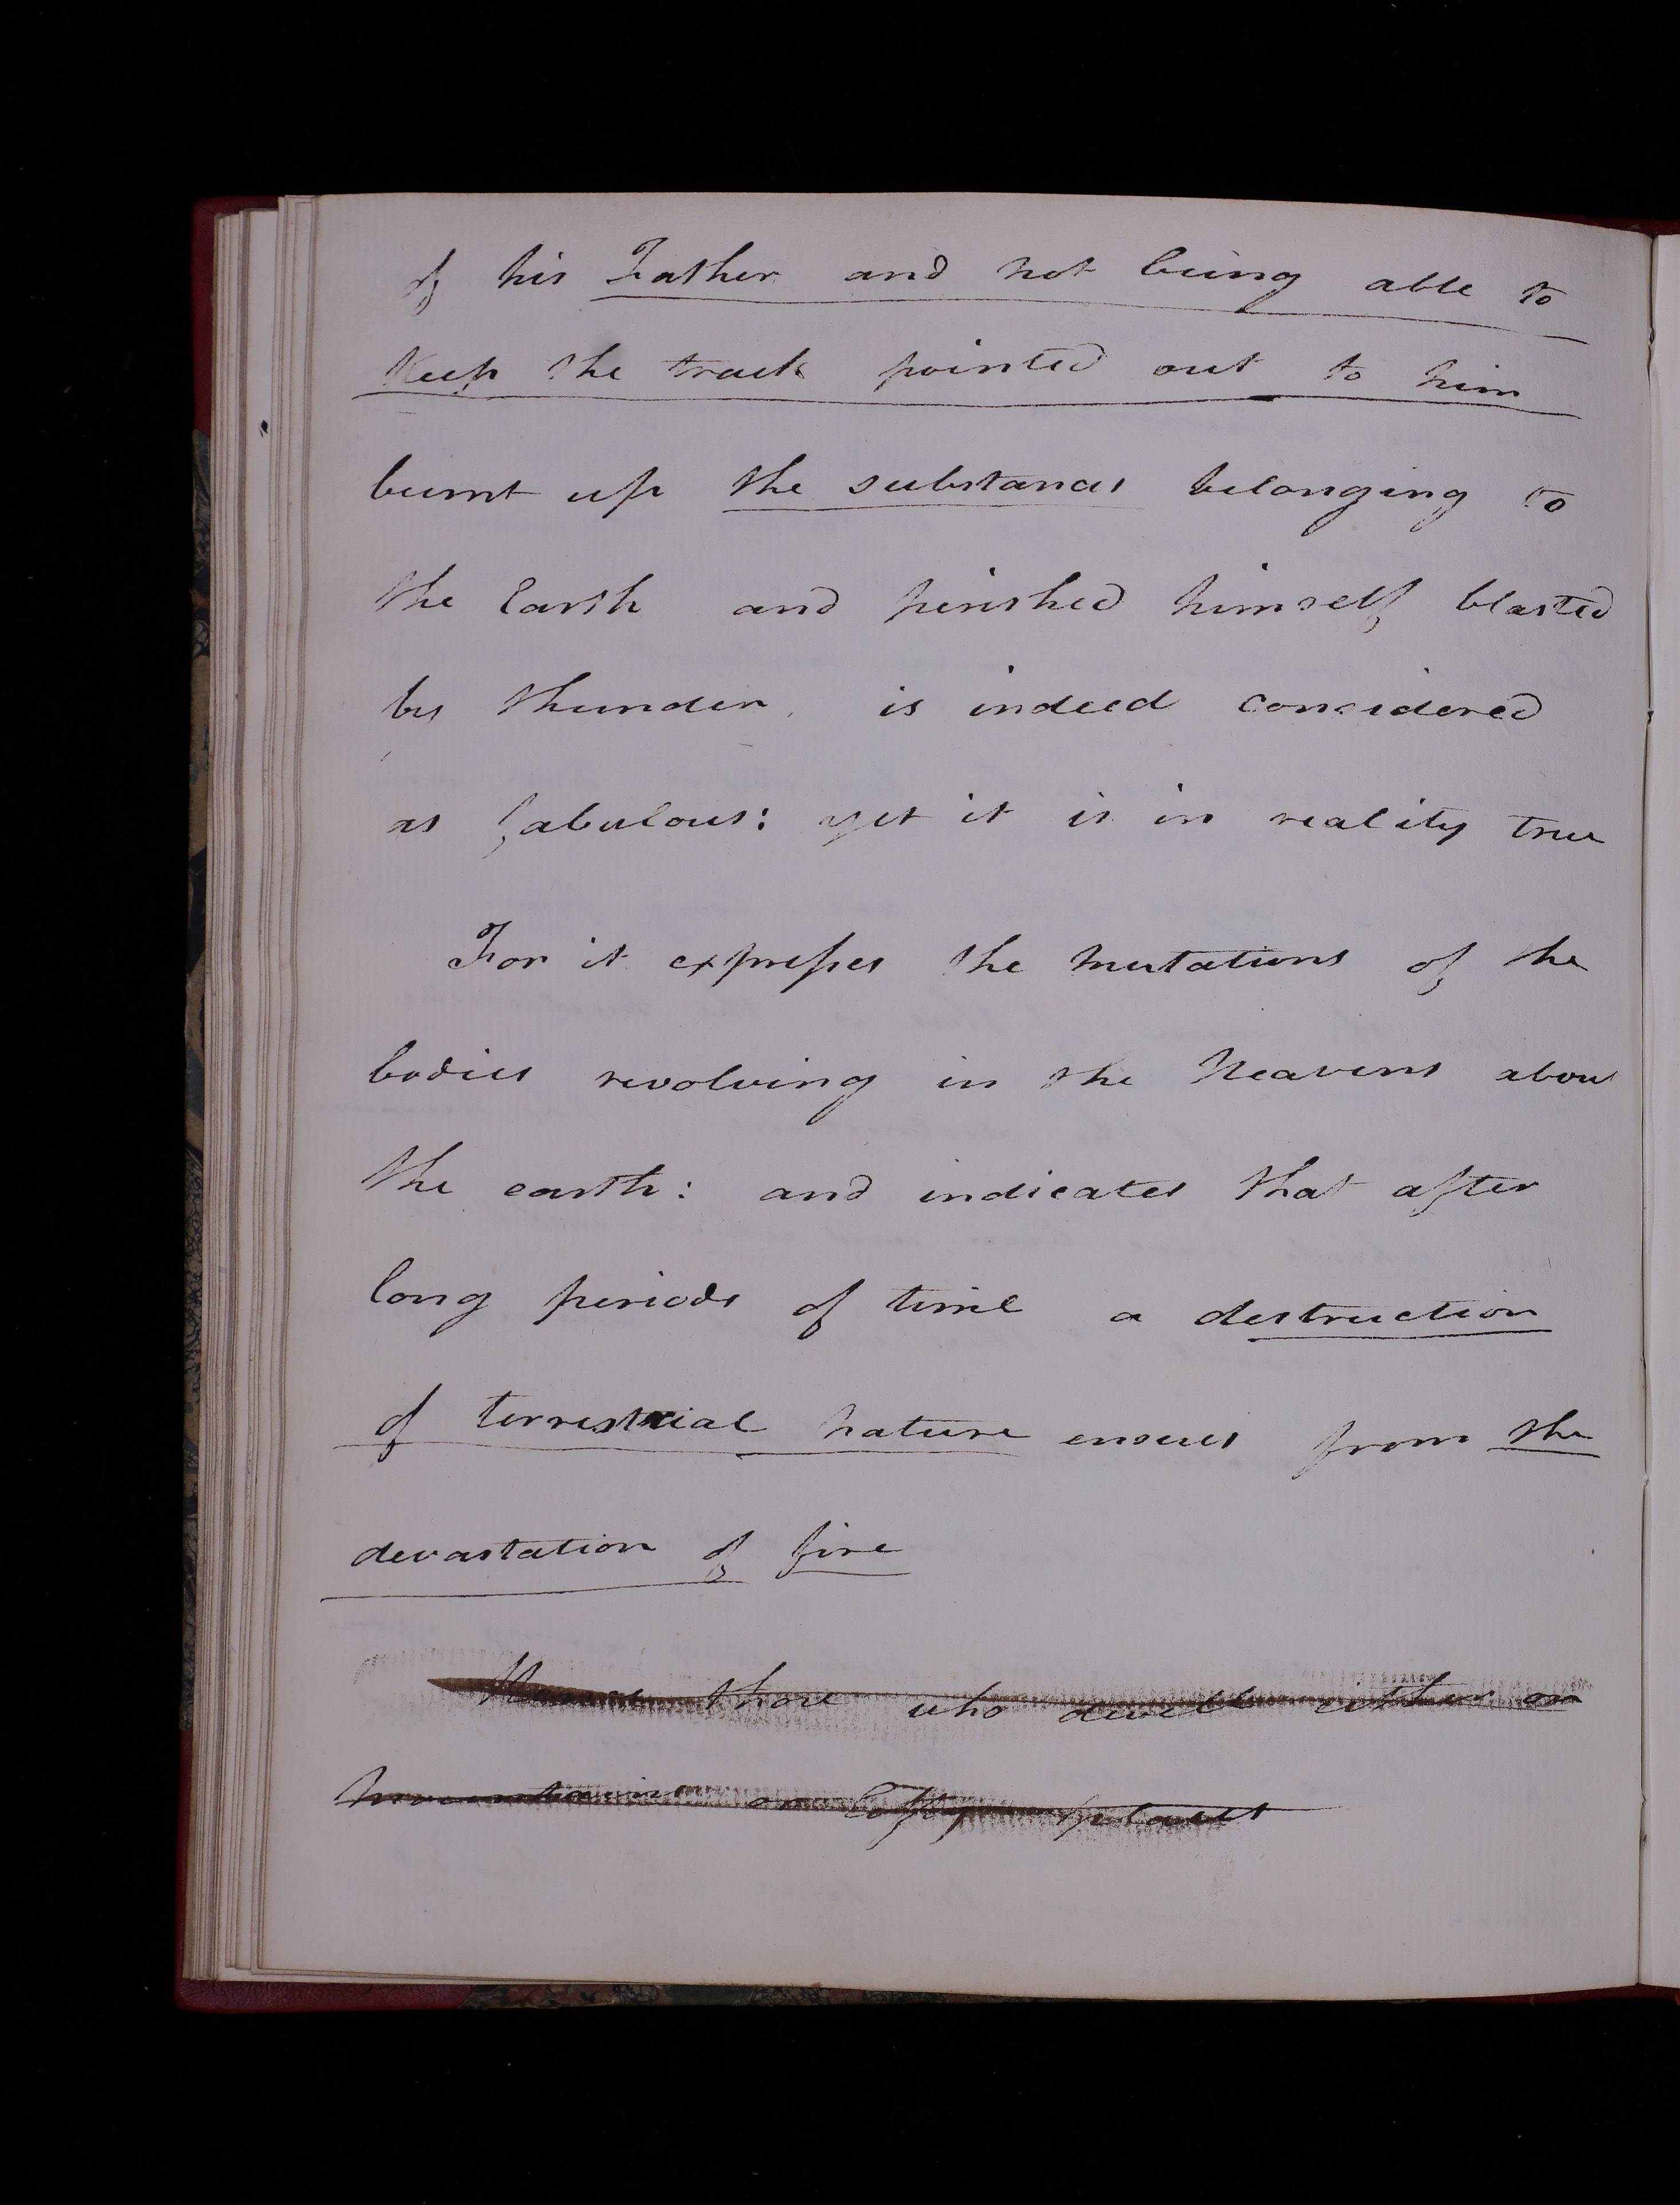 of his Father and not being able to
Keep the track pointed out to him
burnt up the substances belonging to
the Earth and perished himself blasted
by thunder. is indeed considered
as fabulous: yet it is in reality true
For it expresses the mutations of the
bodies revolving in the Heavens about
the earth: and indicates that after
long periods of time a destruction
of terrestrial nature ensues from the
devastation of fire
Hence those who dwell either on
mountains or lofty places